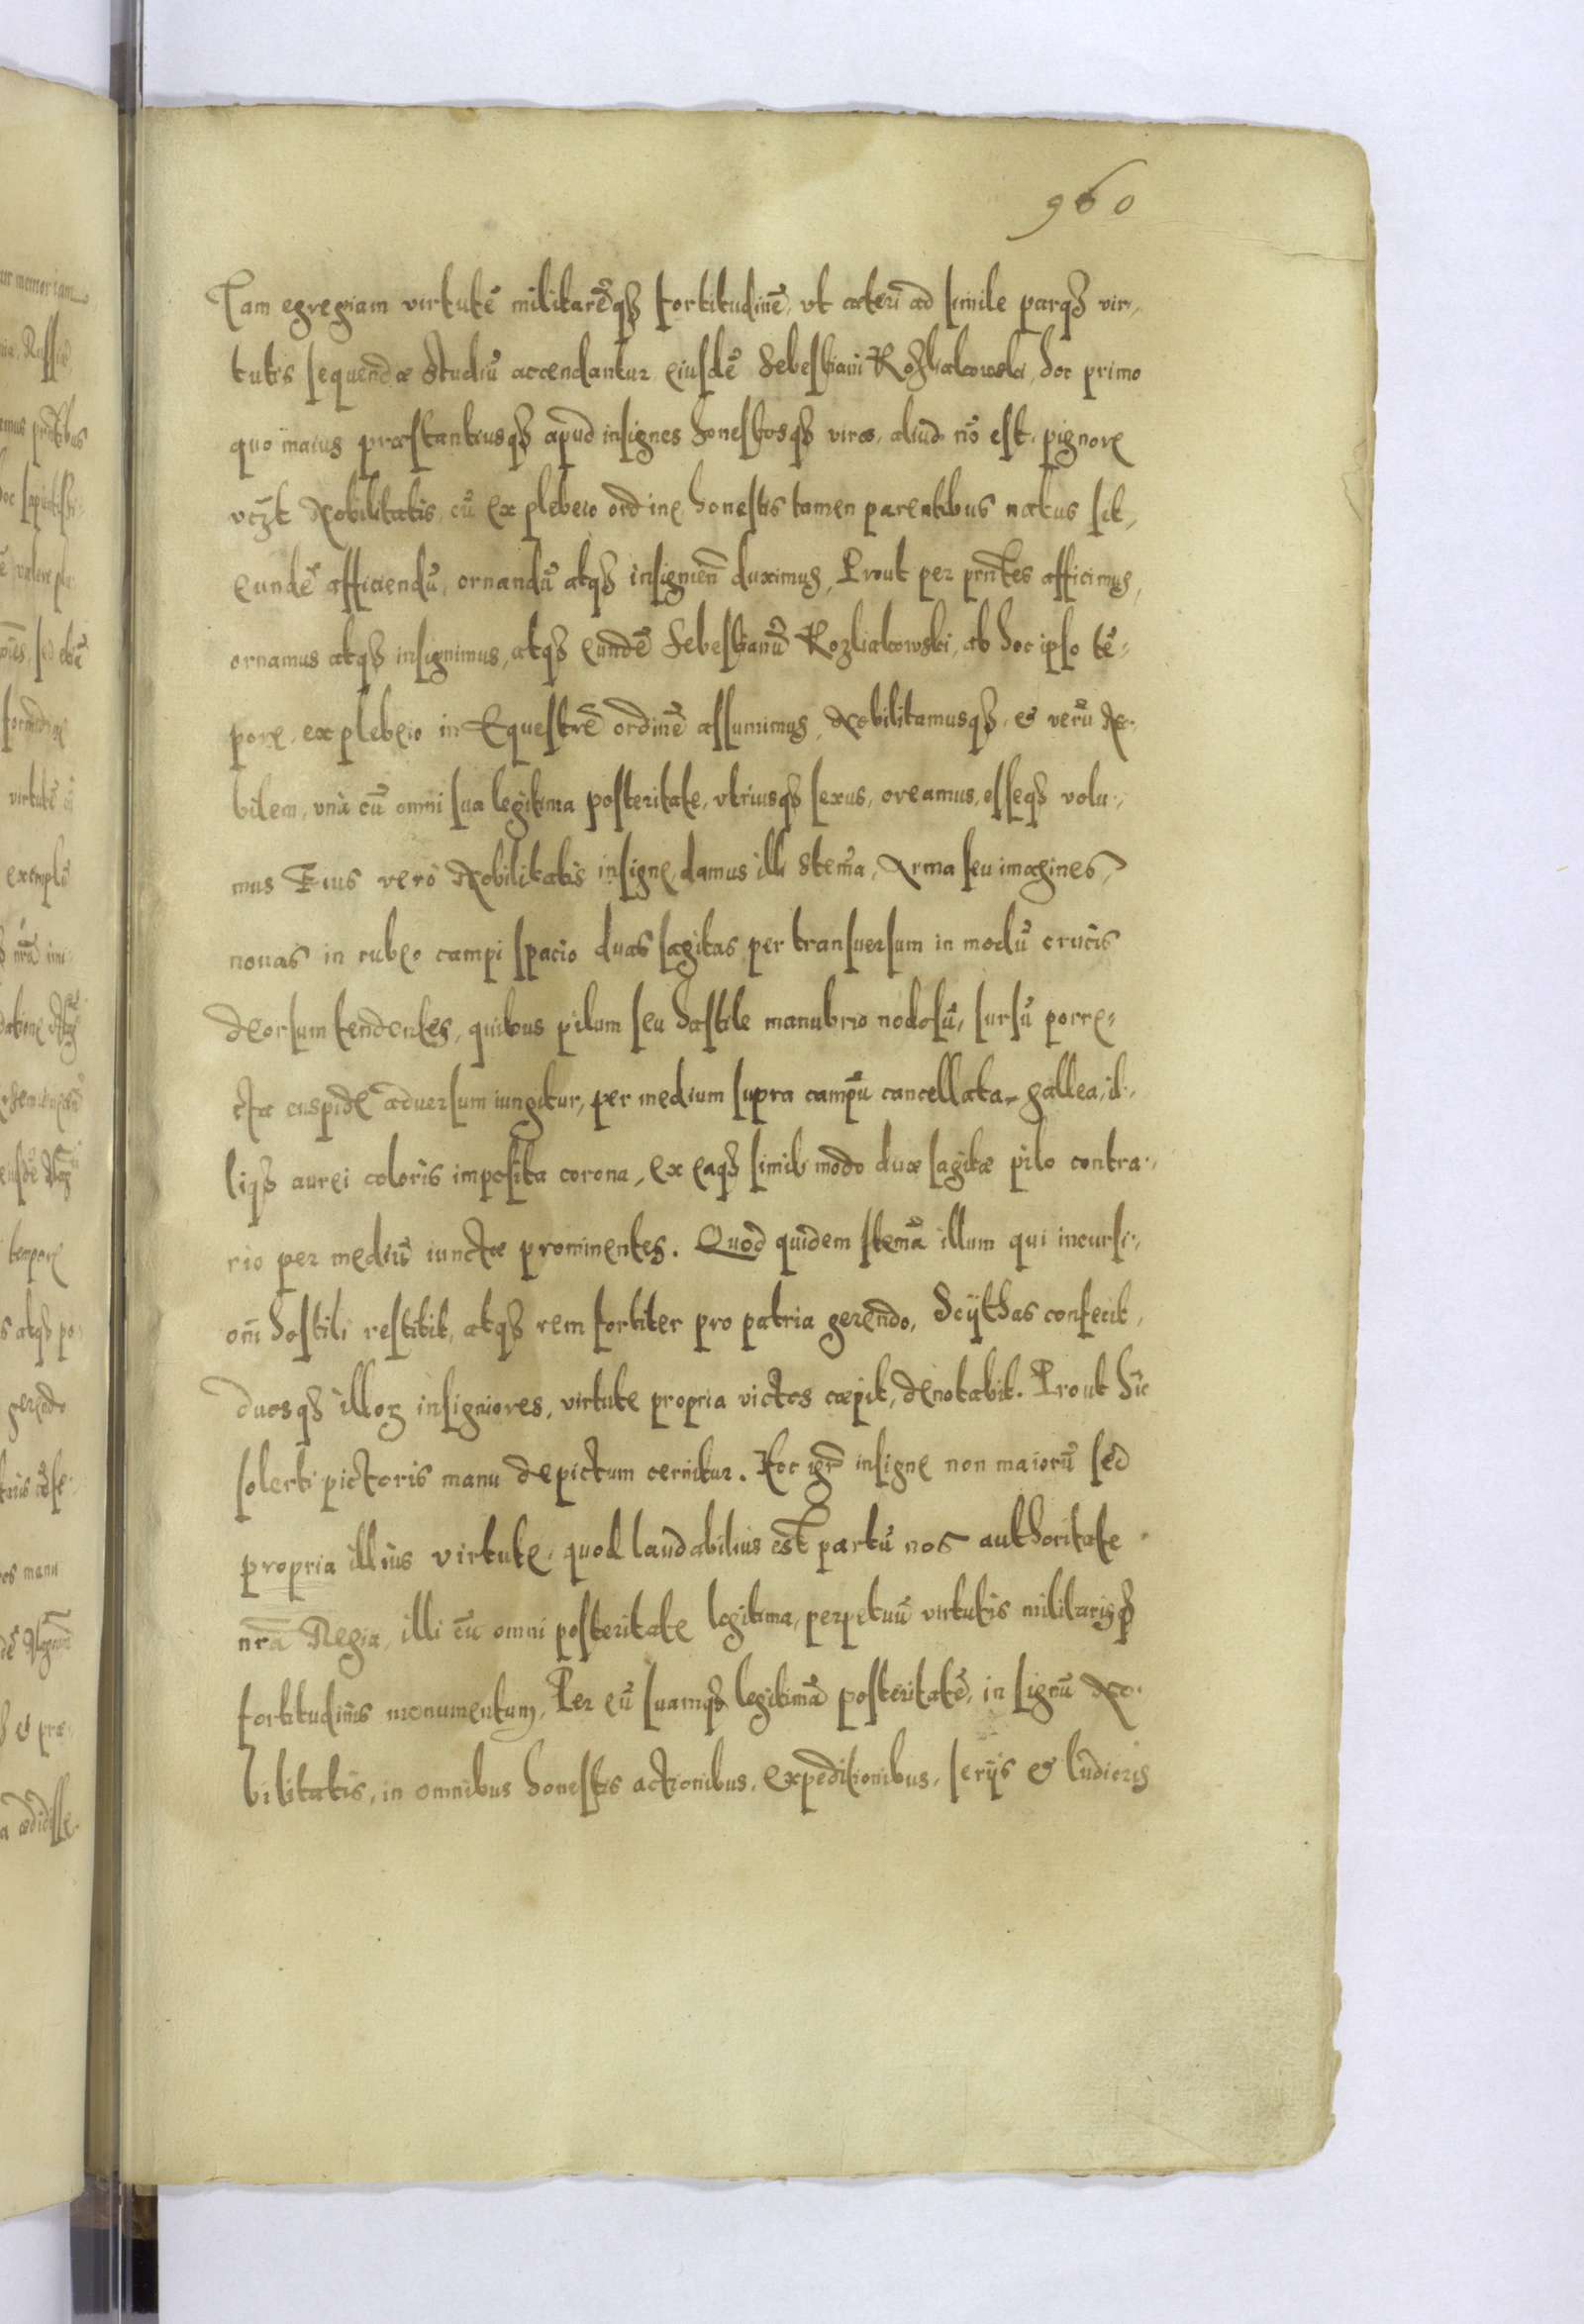 960
Tam egregiam virtutẽ militarẽqꝫ fortitudinẽ, vt cæteri ad simile parqꝫ vir-
tutis sequendæ studiũ accendantur eiusdẽ Sebestiani Rozliakowski, hoc primo
quo maius præstantiusqꝫ apud insignes honestosqꝫ viros, aliud nõ est, pignore
vczt Nobilitatis, cũ ex plebeio ordine, honestis tamen parentibus natus sit,
eundẽ afficiendũ, ornandũ atqꝫ insignień duximus, Prout per prñtes afficimus,
ornamus atqꝫ insignimus, atqꝫ eundẽ Sebestianũ Rozliakowski, ab hoc ipso tẽ-
pore, ex plebeio in Equestrẽ ordinẽ assumimus, Nobilitamusqꝫ, & verũ No-
bilem, vnà cũ omni sua legitima posteritate, vtriusqꝫ sexus, creamus, esseqꝫ volu-
mus Eius verò Nobilitatis insigne, damus illi stem̃a, Arma seu imagines,
nouas in rubeo campi spacio duas sagitas per transuersum in modũ crucis
deorsum tendentes, quibus pilum seu hastile manubrio nodosũ, sursũ porre-
cta cuspide aduersum iungitur, per medium supra campũ cancellata gallea, il-
liqꝫ aurei coloris imposita corona, ex eaqꝫ simili modo duæ sagitæ pilo contra-
rio per mediũ iunctæ prominentes. Quod quidem stem̃a illum qui incursi-
oni hostili restitit, atqꝫ rem fortiter pro patria gerendo, Scÿthas confecit,
duosqꝫ illoꝝ insigniores, virtute propria victos cæpit, denotabit. Prout hic
solerti pictoris manu depictum cernitur. Hoc igr̃ insigne non maiorũ sed
propria illius virtute, quod laudabilius est partũ nos authoritate
nrã Regia, illi cũ omni posteritate legitima, perpetuũ virtutis militarisqꝫ
fortitudinis monumentum, Per eũ suamqꝫ legitimã posteritatẽ, in signũ No-
bilitatis, in omnibus honestis actionibus, expeditionibus, serÿs & ludicris